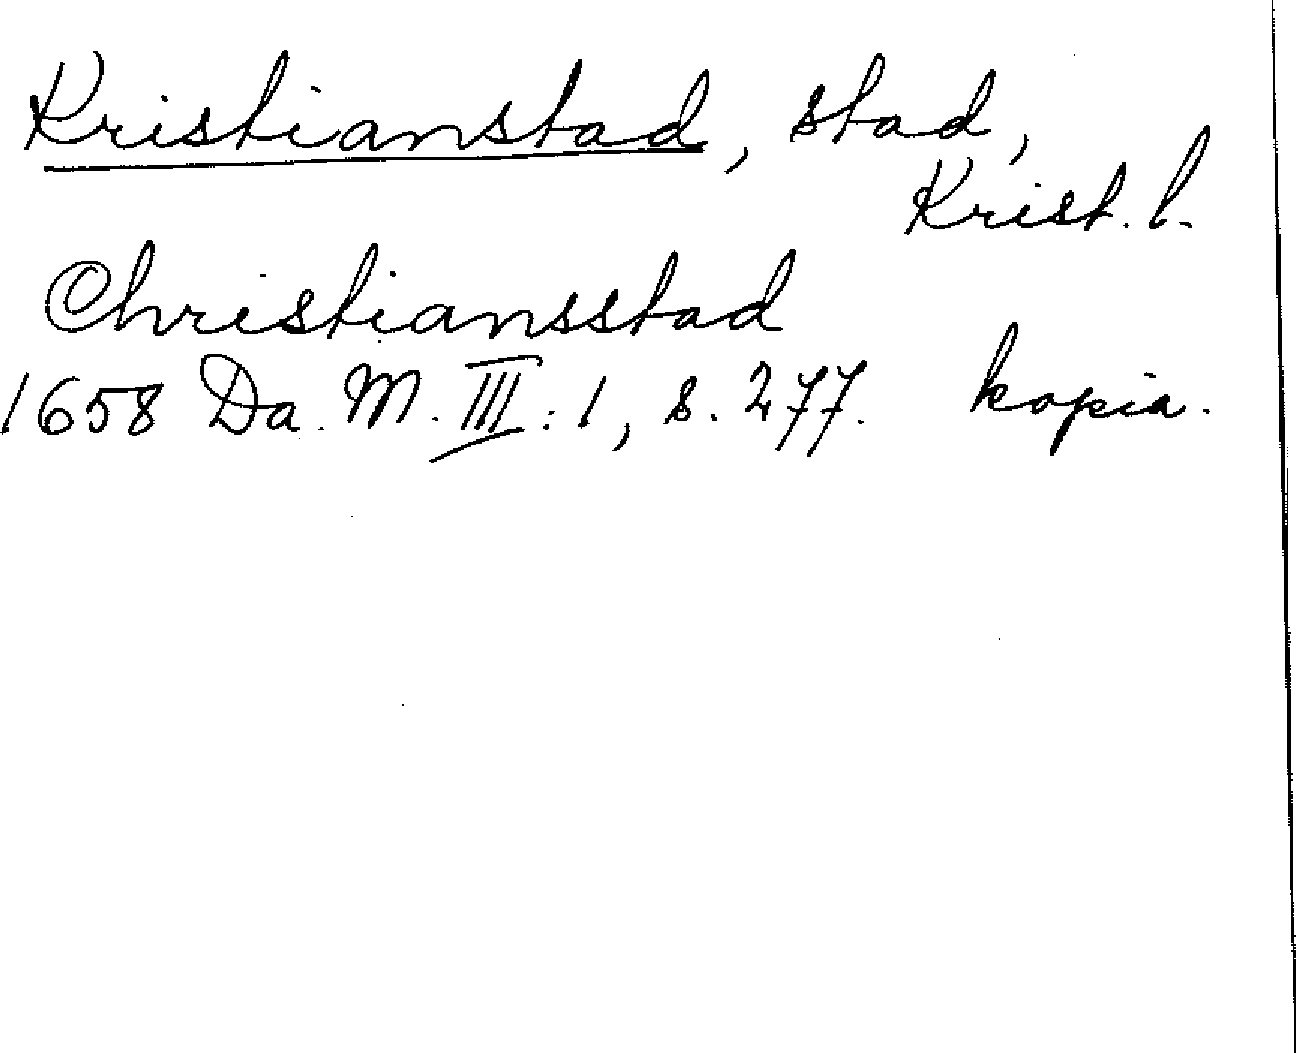 Kristianstad, stad,
Krist. l.
Christiansstad
1658 Da. M. III: 1, s. 277. kopia.